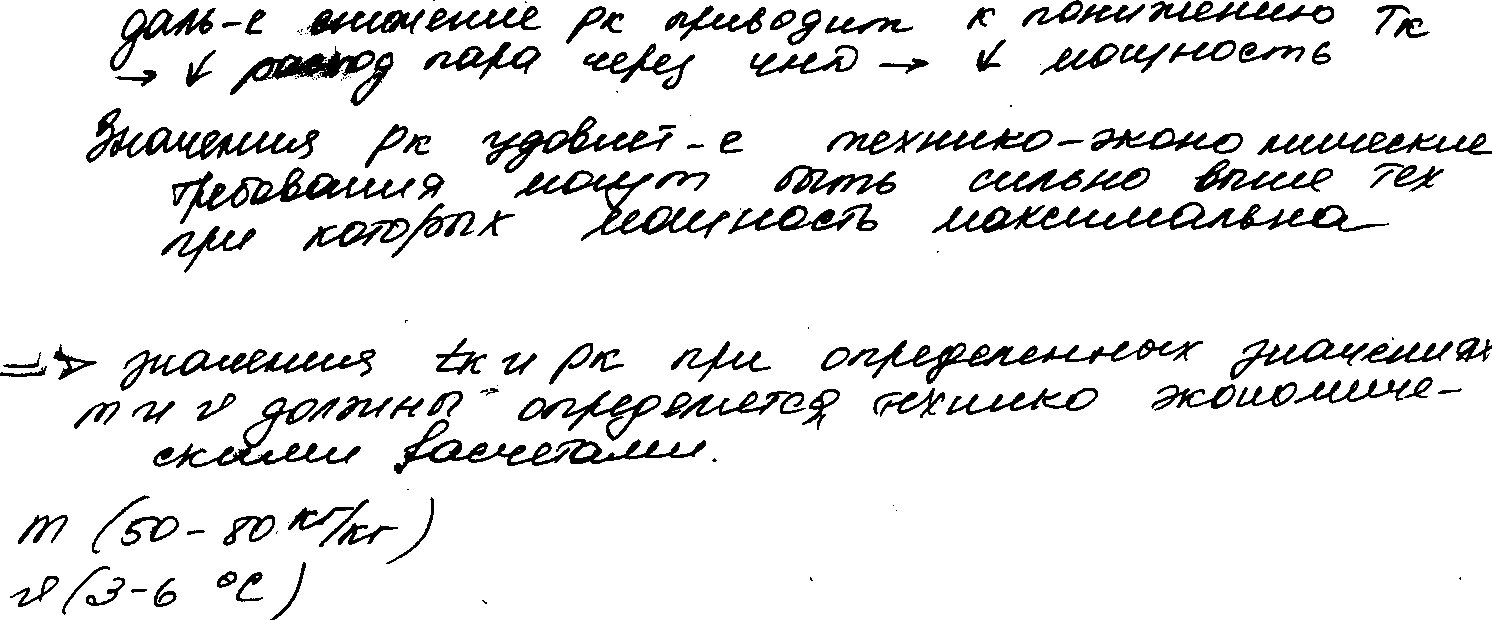 даль-е снижение рк приводит к понижению Тк
→ ↓ расход пара через ЧНД → ↓ мощность
Значения рк удовлет-е технико-экономические
требования могут быть сильно выше тех
при которых мощность максимальна
=> значения tк и рк при определенных значениях
m и υ должны определяется технико экономиче-
скими расчетами.
m (50-80 кг/кг)
υ (3-6 °С)